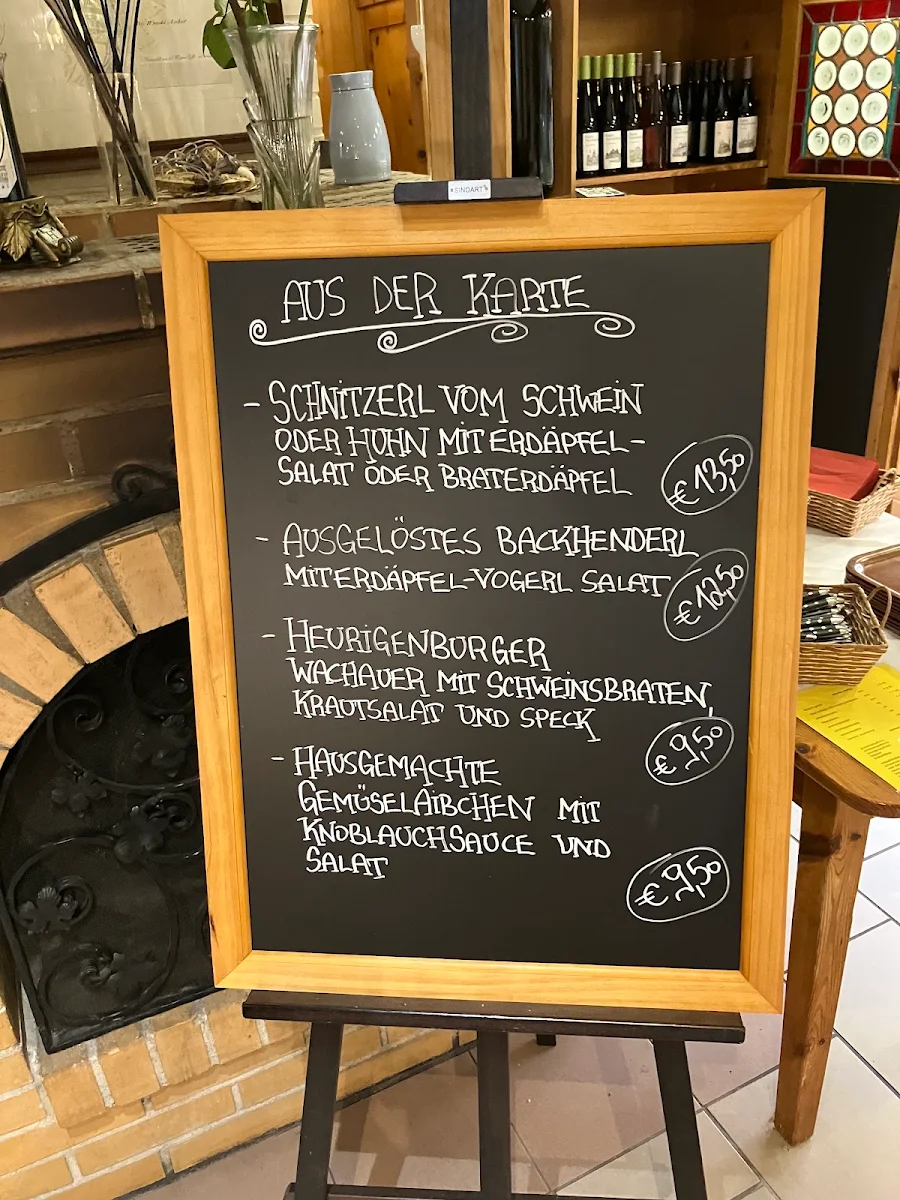 SINOART
AUS DER KARTE
- SCHNITZERL VOM SCHWEIN
ODER HUHN MIT ERDÄPFEL-
SALAT ODER BRATERDÄPFEL
€ 13,50
- AUSGELÖSTES BACKHENDERL
MIT ERDÄPFEL-VOGERL SALAT
€ 12,50
- HEURIGENBURGER
WACHAUER MIT SCHWEINSBRATEN,
KRAUTSALAT UND SPECK
€ 9,50
- HAUSGEMACHTE
GEMÜSELAIBCHEN MIT
KNOBLAUCHSAUCE UND
SALAT
€ 9,50